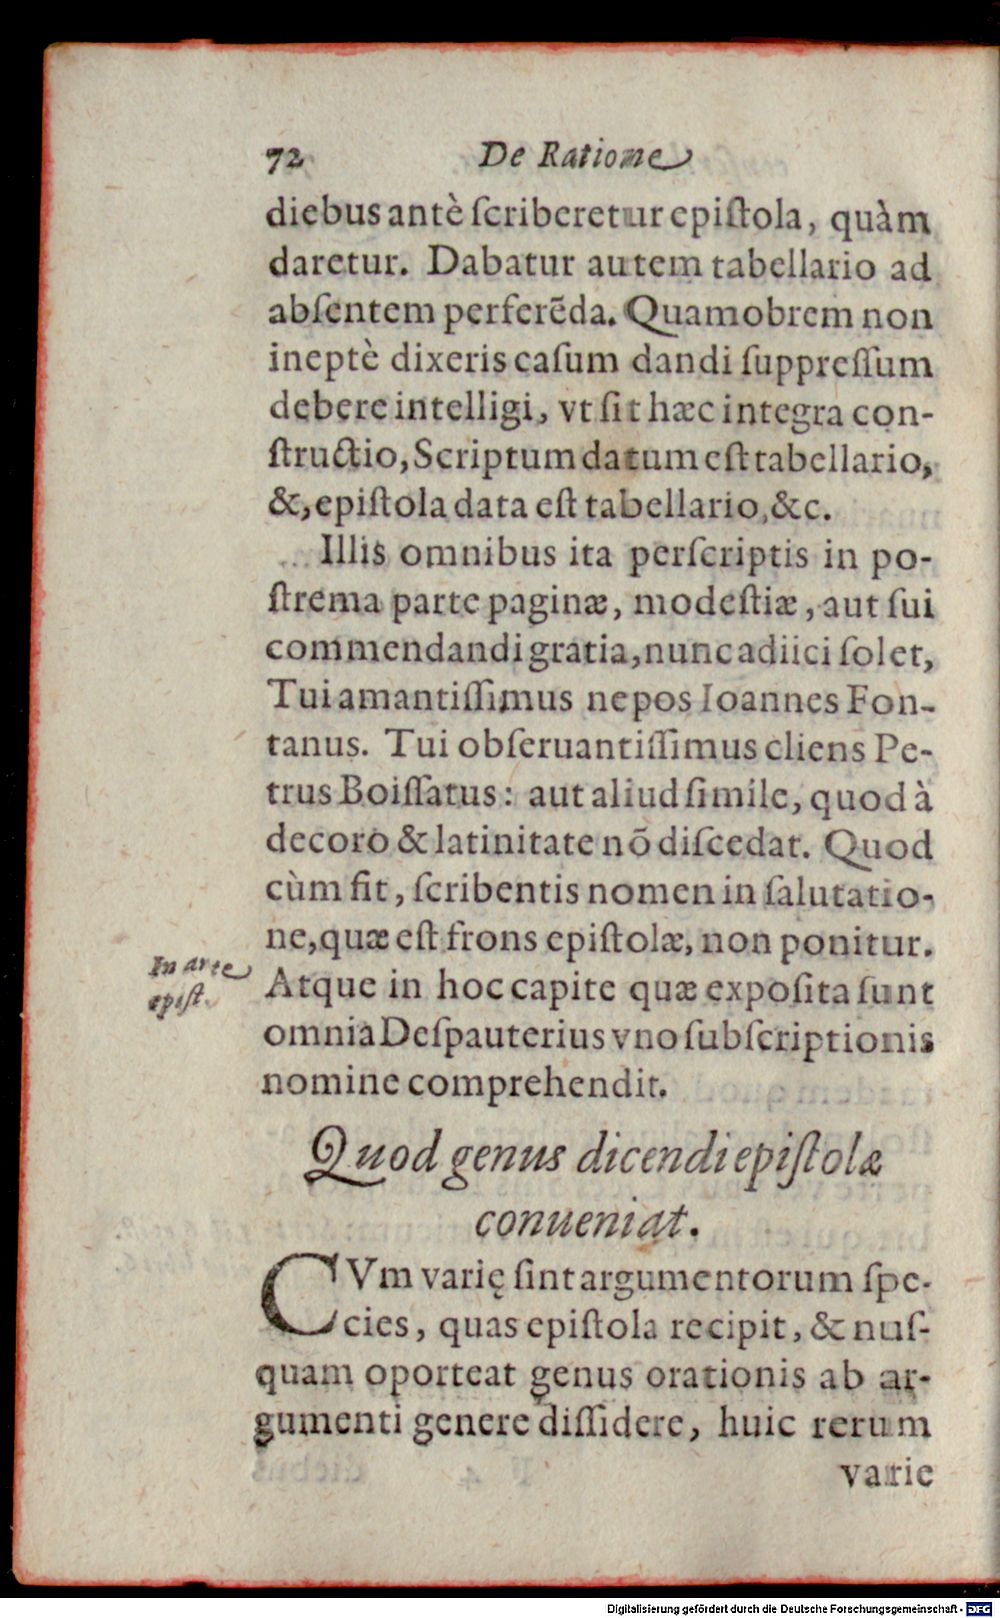 72 De Ratione
diebus antè ſcriberetur epiſtola, quàm
daretur. Dabatur autem tabellario ad
abſentem perferēda. Quamobrem non
ineptè dixeris caſum dandi ſuppreſſum
debere intelligi, vt ſit hæc integra con-
ſtructio, Scriptum datum eſt tabellario,
&, epiſtola data eſt tabellario, &c.
Illis omnibus ita perſcriptis in po-
ſtrema parte paginæ, modeſtiæ, aut ſui
commendandi gratia, nunc adiici ſolet,
Tui amantiſſimus nepos Ioannes Fon-
tanus. Tui obſeruantiſſimus cliens Pe-
trus Boiſſatus: aut aliud ſimile, quod à
decoro & latinitate nō diſcedat. Quod
cùm fit, ſcribentis nomen in ſalutatio-
ne, quæ eſt frons epiſtolæ, non ponitur.
In arte
epiſt.
Atque in hoc capite quæ expoſita ſunt
omnia Deſpauterius vno ſubſcriptionis
nomine comprehendit.
Quod genus dicendi epiſtolæ
conueniat.
CVm varię ſint argumentorum ſpe-
cies, quas epiſtola recipit, & nuſ-
quam oporteat genus orationis ab ar-
gumenti genere diſſidere, huic rerum
varie
Digitalisierung gefördert durch die Deutsche Forschungsgemeinschaft - DFG